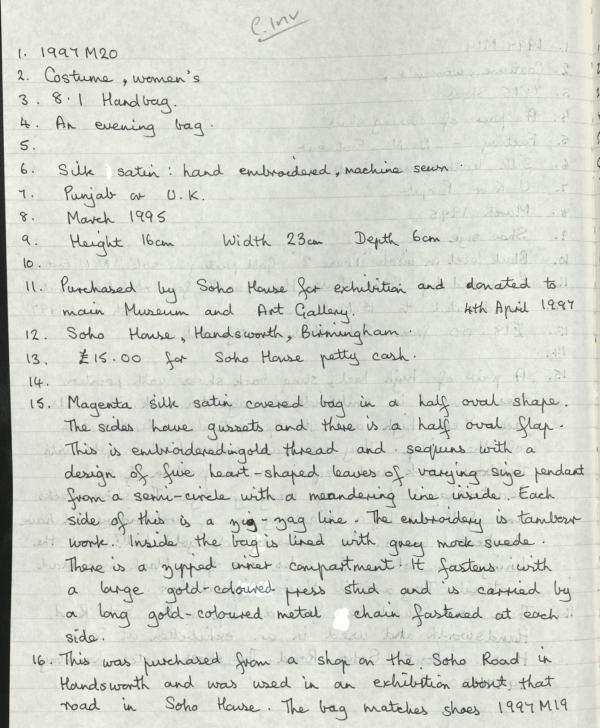 C. Inv
1. 1997 M20
2. Costume, women's
3. 8.1 Handbag.
4. An evening bag.
5.
6. Silk satin: hand embroidered, machine sewn.
7. Punjab or U.K.
8. March 1995
9. Height 16cm Width 23cm Depth 6cm
10.
11. Purchased by Soho House for exhibition and donated to
main Museum and Art Gallery. 4th April 1997
12. Soho House, Handsworth, Birmingham.
13. £15.00 for Soho House petty cash.
14.
15. Magenta silk satin covered bag in a half oval shape.
The sides have gussets and there is a half oval flap.
This is embroidered in gold thread and sequins with a
design of five heart-shaped leaves of varying size pendant
from a semi-circle with a meandering line inside. Each
side of this is a zig-zag line. The embroidery is tambour
work. Inside the bag is lined with grey mock suede.
There is a zipped inner compartment. It fastens with
a large gold-coloured press stud and is carried by
a long gold-coloured metal chain fastened at each
side.
16. This was purchased from a shop on the Soho Road in
Handsworth and was used in an exhibition about that
road in Soho House. The bag matches shoes 1997M19